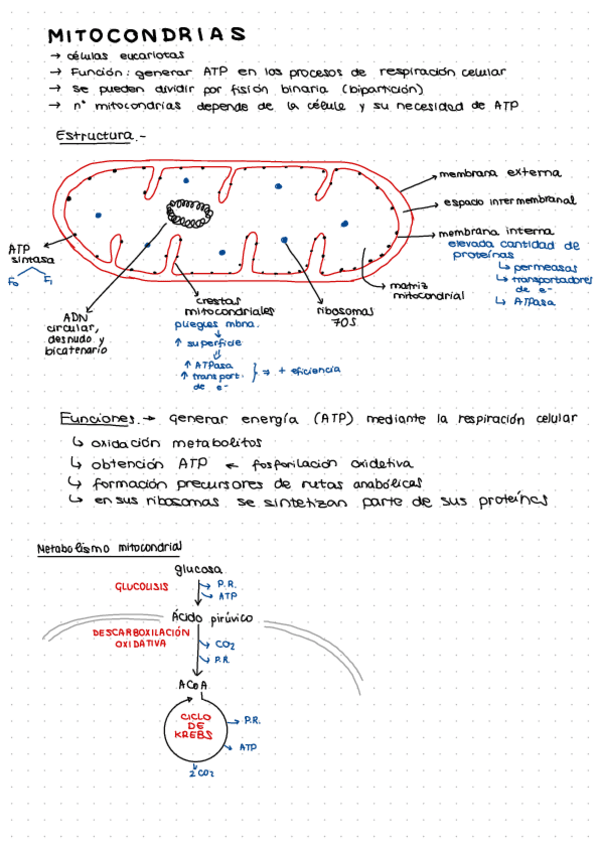 MITOCONDRIAS
→ células eucariotas
→ Función: generar ATP en los procesos de respiración celular
→ se pueden dividir por fisión binaria (bipartición)
→ nº mitocondrias depende de la célula y su necesidad de ATP
Estructura.-
membrana externa
espacio intermembranal
membrana interna
elevada cantidad de
proteínas
↳ permeasas
↳ transportadores
de e-
↳ ATPasa
matriz
mitocondrial
ATP
sintasa
F0 F1
ADN
circular,
desnudo y
bicatenario
crestas
mitocondriales
pliegues mbna.
↑ superficie
↑ ATPasa
↑ transport.
de e-
→ + eficiencia
ribosomas
70S
Funciones.→ generar energía (ATP) mediante la respiración celular
↳ oxidación metabolitos
↳ obtención ATP ← fosforilación oxidativa
↳ formación precursores de rutas anabólicas
↳ en sus ribosomas se sintetizan parte de sus proteínas
Metabolismo mitocondrial
glucosa
GLUCOLISIS
P.R.
ATP
Ácido pirúvico
DESCARBOXILACIÓN
OXIDATIVA
CO2
P.R.
ACoA
CICLO
DE
KREBS
P.R.
ATP
2 CO2